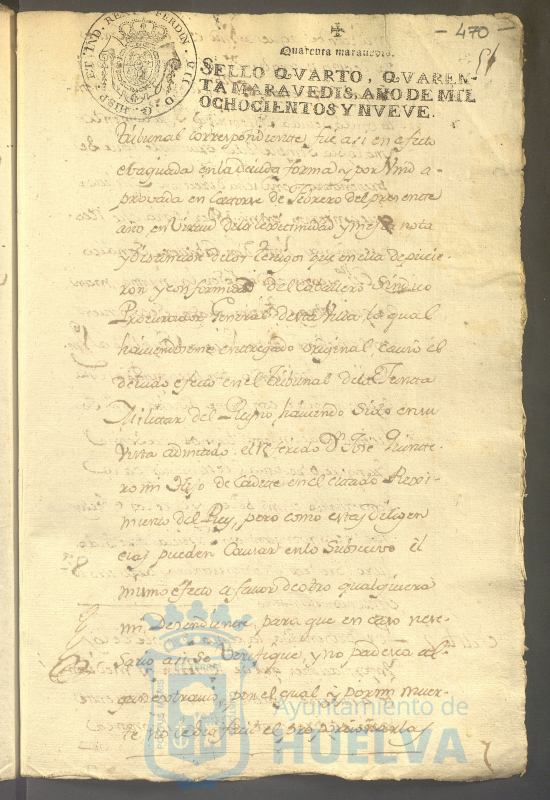 - 470 -
51
HISP. ET IND. REX. FERDIN. VII. D. G.
Quarenta maravedis.
SELLO QVARTO, QVAREN-
TA MARAVEDIS, AÑO DE MIL
OCHOCIENTOS Y NVEVE.
tribunal correspondiente fue asi en efecto
evaquada en la devida forma y por Vmd a-
probada en Catorse de Febrero del presente
año en Virtud dela lexitimidad y mejor nota
y distincion delos testigos que en ella depucie-
ron y conformidad del Caballero Sindico
Procurador General desta Villa lo qual
haviendoseme entregado original causó el
devido efecto en el Tribunal dela
Militar del Reyno haviendo sido en su
Vista admitado el referido Dn. Jose Quinte-
ro mi Hijo de Cadete en el citado Rexi-
miento del Rey, pero como estas diligen
cias pueden Causar en lo Subcesivo el
mismo efecto a favor de otro qualquiera
mi Desendiente, para que en caso nese-
sario asi se Verifique y no padesca al-
gun extravio, por el qual y por mi muer-
te no le sea facil el proporsionarla
Ayuntamiento de
HUELVA